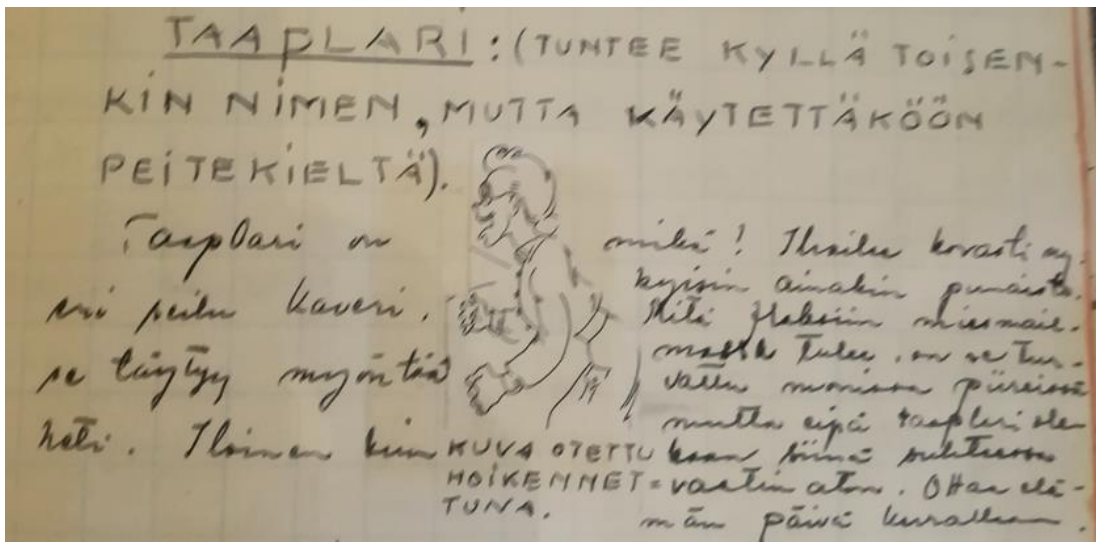 TAAPLARI: (TUNTEE KYLLÄ TOISEN-
KIN NIMEN, MUTTA KÄYTETTÄKÖÖN
PEITEKIELTÄ).
Taaplari on
peilu kaveri,
se täytyy myöntää
heti. Iloinen kuin
mikä! Ihailee kovasti ny-
kyisin ainakin punaista.
Mitä flaksiin miesmaail-
massa tulee, on se tur-
vattu monissa piireissä
mutta eipä taaplari ole
kaan siinä suhteessa
Ottaa elä-
män päivä kerrallaan.
KUVA OTETTU
HOIKENNET=
TUNA.